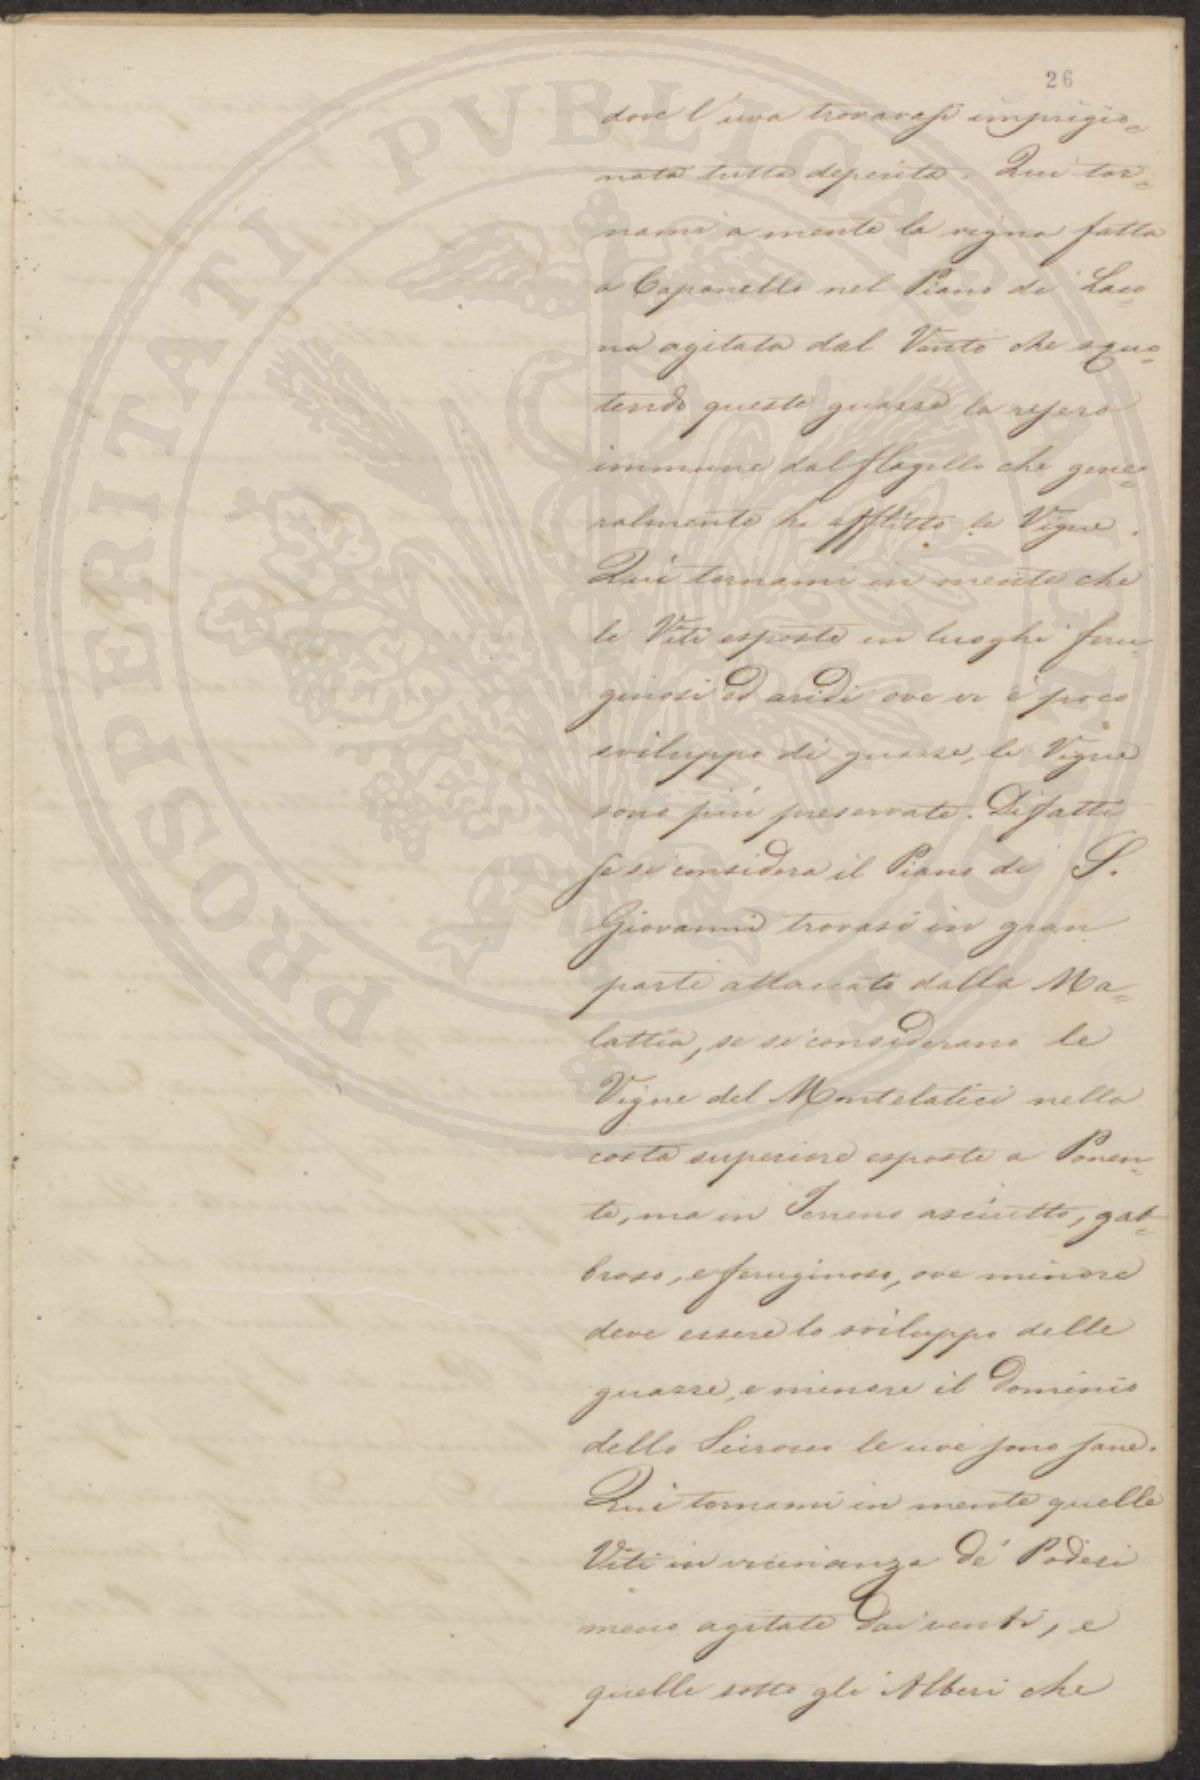 26
dove l'uva trovavasi imprigio=
nata tutta deperita. Qui tor=
nami a mente la vigna fatta
a Capanello nel Piano di Laco=
na agitata dal Vento che squo=
tendo queste guazze la resero
immune dal flagello che gene=
ralmente ha afflitto le Vigne.
Qui tornami in mente che
le Viti esposte in luoghi feru=
ginosi ed aridi ove vi è poco
sviluppo di guazze, le Vigne
sono più preservate. Difatti
se si considera il Piano di S.
Giovanni trovasi in gran
parte attaccato dalla Ma=
lattia, se si considerano le
Vigne del Montelatici nella
costa superiore esposte a Ponen=
te, ma in Terreno asciutto, gab=
broso, e feruginoso, ove minore
deve essere lo sviluppo delle
guazze, e minore il Dominio
dello Scirocco le uve sono sane.
Qui tornami in mente quelle
Viti in vicinanza de' Poderi
meno agitate dai venti, e
quelle sotto gli Alberi che
PROSPERITATI PVBLICAE